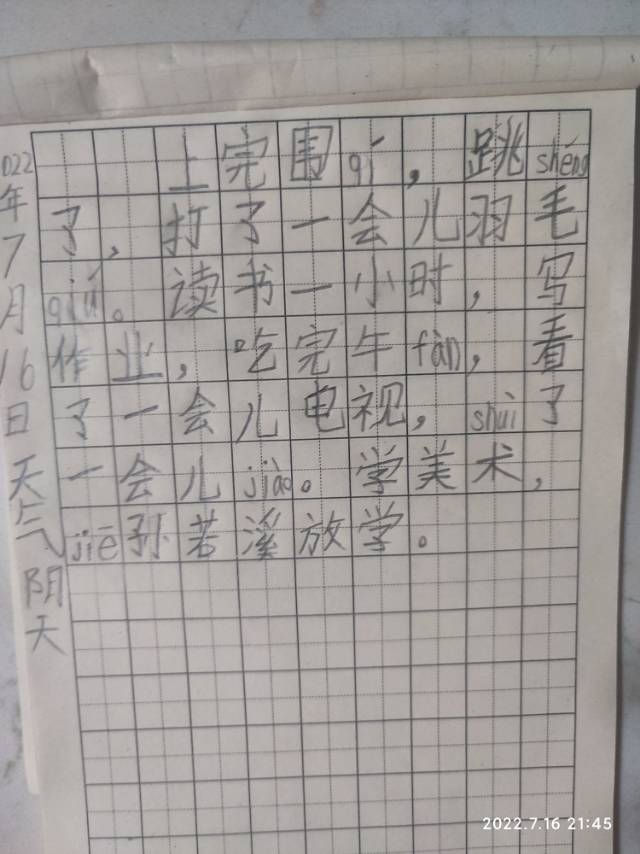 2022年7月16日 天气阴天
上完围qí，跳shéng
了，打了一会儿羽毛
qiú。读书一小时，写
作业，吃完牛fàn，看
了一会儿电视，shuì了
一会儿jiào。学美术，
jiē孙若溪放学。
2022.7.16 21:45